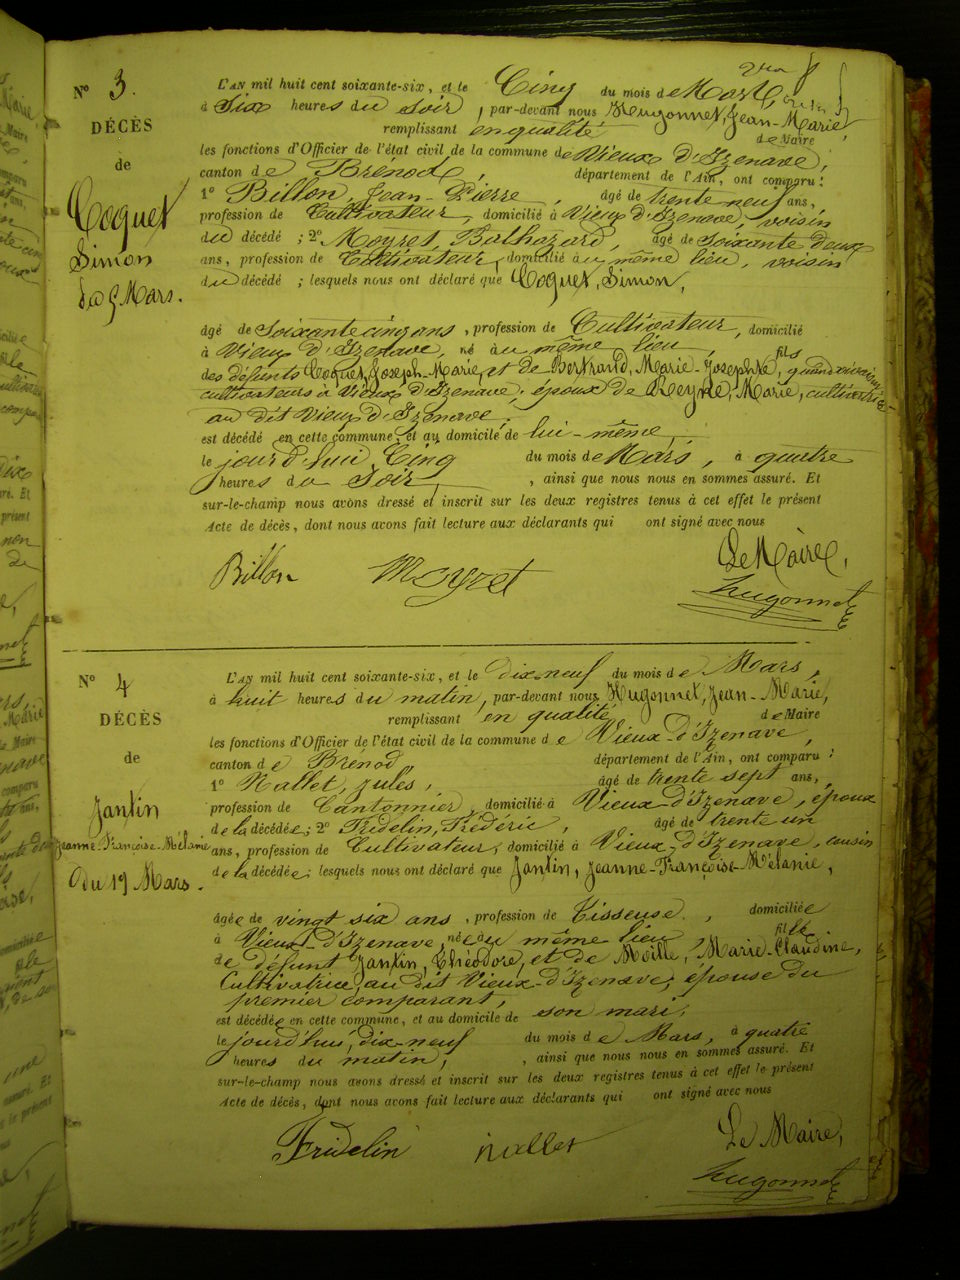 N° 3.
DÉCÈS
de
Coquet
Simon
du 5 Mars.
L'AN mil huit cent soixante-six, et le Cinq du mois de Mars,
à Six heures du soir, par-devant nous Hugonnet, Jean-Marie,
remplissant en qualité de Maire
les fonctions d'Officier de l'état civil de la commune de Vieux d'Izenave,
canton de Brénod, département de l'Ain, ont comparu:
1° Billon, Jean-Pierre, âgé de trente neuf ans,
profession de Cultivateur, domicilié à Vieux d'Izenave, voisin
du décédé; 2° Moyret, Balthazard, âgé de soixante deux
ans, profession de Cultivateur, domicilié au même lieu, voisin
du décédé; lesquels nous ont déclaré que Coquet, Simon,
âgé de soixante cinq ans, profession de Cultivateur, domicilié
à Vieux d'Izenave, né au même lieu fils
des défunts Coquet, Joseph-Marie, et de Bertrand, Marie-Josephte, quand vivaient
cultivateurs à Vieux d'Izenave; époux de Reyne, Marie, cultivatrice
au dit Vieux d'Izenave,
est décédé en cette commune, et au domicile de lui-même,
le jourd'hui Cinq du mois de Mars, à quatre
heures du Soir, ainsi que nous nous en sommes assuré. Et
sur-le-champ nous avons dressé et inscrit sur les deux registres tenus à cet effet le présent
Acte de décès, dont nous avons fait lecture aux déclarants qui ont signé avec nous
Billon Moyret Le Maire,
Hugonnet
N° 4
DÉCÈS
de
Jantin
Jeanne-Françoise-Mélanie
du 19 Mars.
L'AN mil huit cent soixante-six, et le dix-neuf du mois de Mars,
à huit heures du matin, par-devant nous Hugonnet, Jean-Marie,
remplissant en qualité de Maire
les fonctions d'Officier de l'état civil de la commune de Vieux-d'Izenave,
canton de Brénod, département de l'Ain, ont comparu:
1° Nallet, Jules, âgé de trente sept ans,
profession de Cantonnier, domicilié à Vieux-d'Izenave, époux
de la décédée; 2° Fridelin, Frédéric, âgé de trente un
ans, profession de Cultivateur, domicilié à Vieux-d'Izenave, cousin
de la décédée; lesquels nous ont déclaré que Jantin, Jeanne-Françoise-Mélanie,
âgée de vingt six ans, profession de Tisseuse, domiciliée
à Vieux-d'Izenave, née au même lieu fille
de défunt Jantin, Théodore, et de Moille, Marie-Claudine,
Cultivatrice, au dit Vieux-d'Izenave, épouse du
premier comparant,
est décédée en cette commune, et au domicile de son mari,
le jourd'hui, dix-neuf du mois de Mars, à quatre
heures du matin, ainsi que nous nous en sommes assuré. Et
sur-le-champ nous avons dressé et inscrit sur les deux registres tenus à cet effet le présent
Acte de décès, dont nous avons fait lecture aux déclarants qui ont signé avec nous
Fridelin nallet Le Maire,
Hugonnet